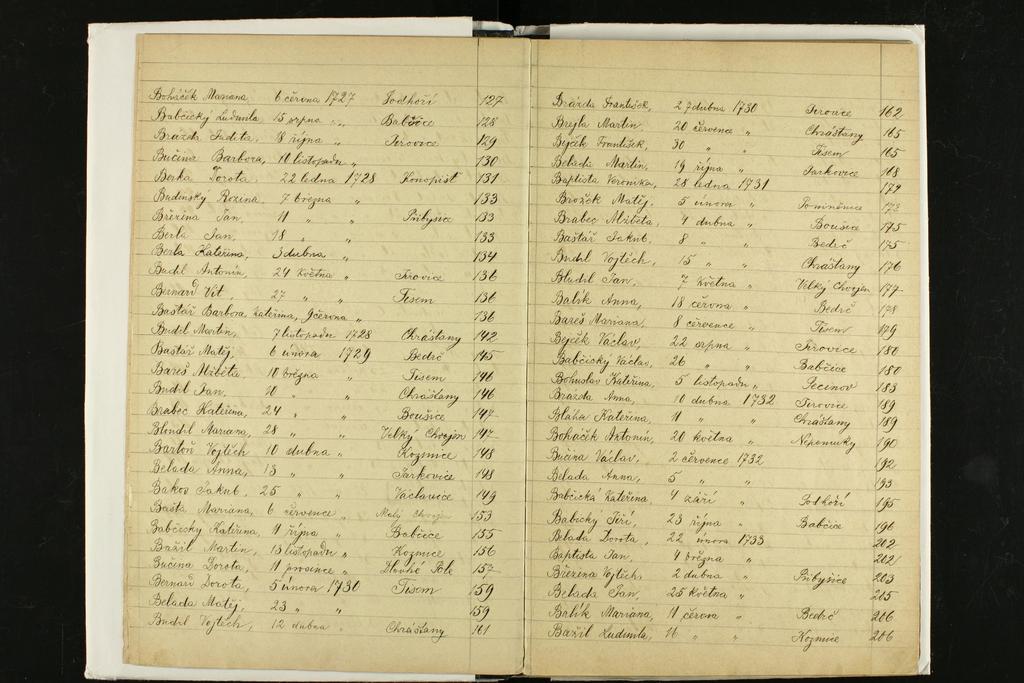 Boháček Mariana 6 června 1727 Podhoří 127
Babčický Ludmila 15 srpna „ Babčice 128
Brázda Judita, 18 října „ Jírovice 129
Bučina Barbora, 10 listopadu „ 130
Berka Dorota, 22 ledna 1728 Konopišť 131
Budínský Rozina 7 března „ 133
Březina Jan, 11 „ „ Přibyšice 133
Berla Jan, 18 „ „ 133
Berla Kateřina, 3 dubna „ 134
Budil Antonín 24 května „ Jírovice 136
Bernard Vít 27 „ „ Tisem 136
Baštář Barbora Kateřina, 9 června „ 136
Budil Martin, 7 listopadu 1728 Chrášťany 142
Baštář Matěj, 6 února 1729 Bedrč 145
Bareš Alžběta 10 března „ Tisem 146
Budil Jan, 20 „ „ Chrášťany 146
Brabec Kateřina, 24 „ „ Boušice 147
Blondil Mariana, 28 „ „ Velký Chvojen 147
Bartoň Vojtěch 10 dubna „ Kozmice 148
Belada Anna, 13 „ „ Jarkovice 148
Bakos Jakub, 25 „ „ Václavice 149
Bašta Mariana, 6 července „ Malý Chvoj 153
Babčický Kateřina, 11 října „ Babčice 155
Bažil Martin, 13 listopadu „ Kozmice 156
Bučina Dorota, 11 prosince „ Dlouhé Pole 157
Bernard Dorota, 5 února 1730 Tisem 159
Belada Matěj, 23 „ „ 159
Budil Vojtěch, 12 dubna „ Chrášťany 161
Brázda František, 27 dubna 1730 Jírovice 162
Brejla Martin, 20 července „ Chrášťany 165
Býček František, 30 „ „ Tisem 165
Belada Martin, 19 října „ Jarkovice 168
Baptista Veronika, 28 ledna 1731 172
Brožek Matěj, 5 února „ Pomněnice 173
Brabec Alžběta, 4 dubna „ Boušice 175
Baštář Jakub, 8 „ „ Bedrč 175
Budil Vojtěch, 15 „ „ Chrášťany 176
Bludil Jan, 7 května „ Velký Chvojen 177
Balík Anna, 18 června „ Bedrč 178
Bareš Mariana, 8 července „ Tisem 179
Býček Václav, 22 srpna „ Jírovice 180
Babčický Václav, 26 „ „ Babčice 180
Bohuslav Kateřina, 5 listopadu „ Pecinov 183
Brázda Anna, 10 dubna 1732 Jírovice 189
Bláha Kateřina, 11 „ „ Chrášťany 189
Boháček Antonín, 20 května „ Nepomuky 190
Bučina Václav, 2 července 1732 192
Belada Anna, 5 „ „ 193
Babčická Kateřina 4 září „ Podhoří 195
Babický Jiří, 23 října „ Babčice 196
Belada Dorota, 22 února 1733 202
Baptista Jan, 4 března „ 202
Březina Vojtěch, 2 dubna „ Přibyšice 203
Belada Jan, 25 května „ 205
Balík Mariana, 11 června „ Bedrč 206
Bažil Ludmila, 16 „ „ Kozmice 206